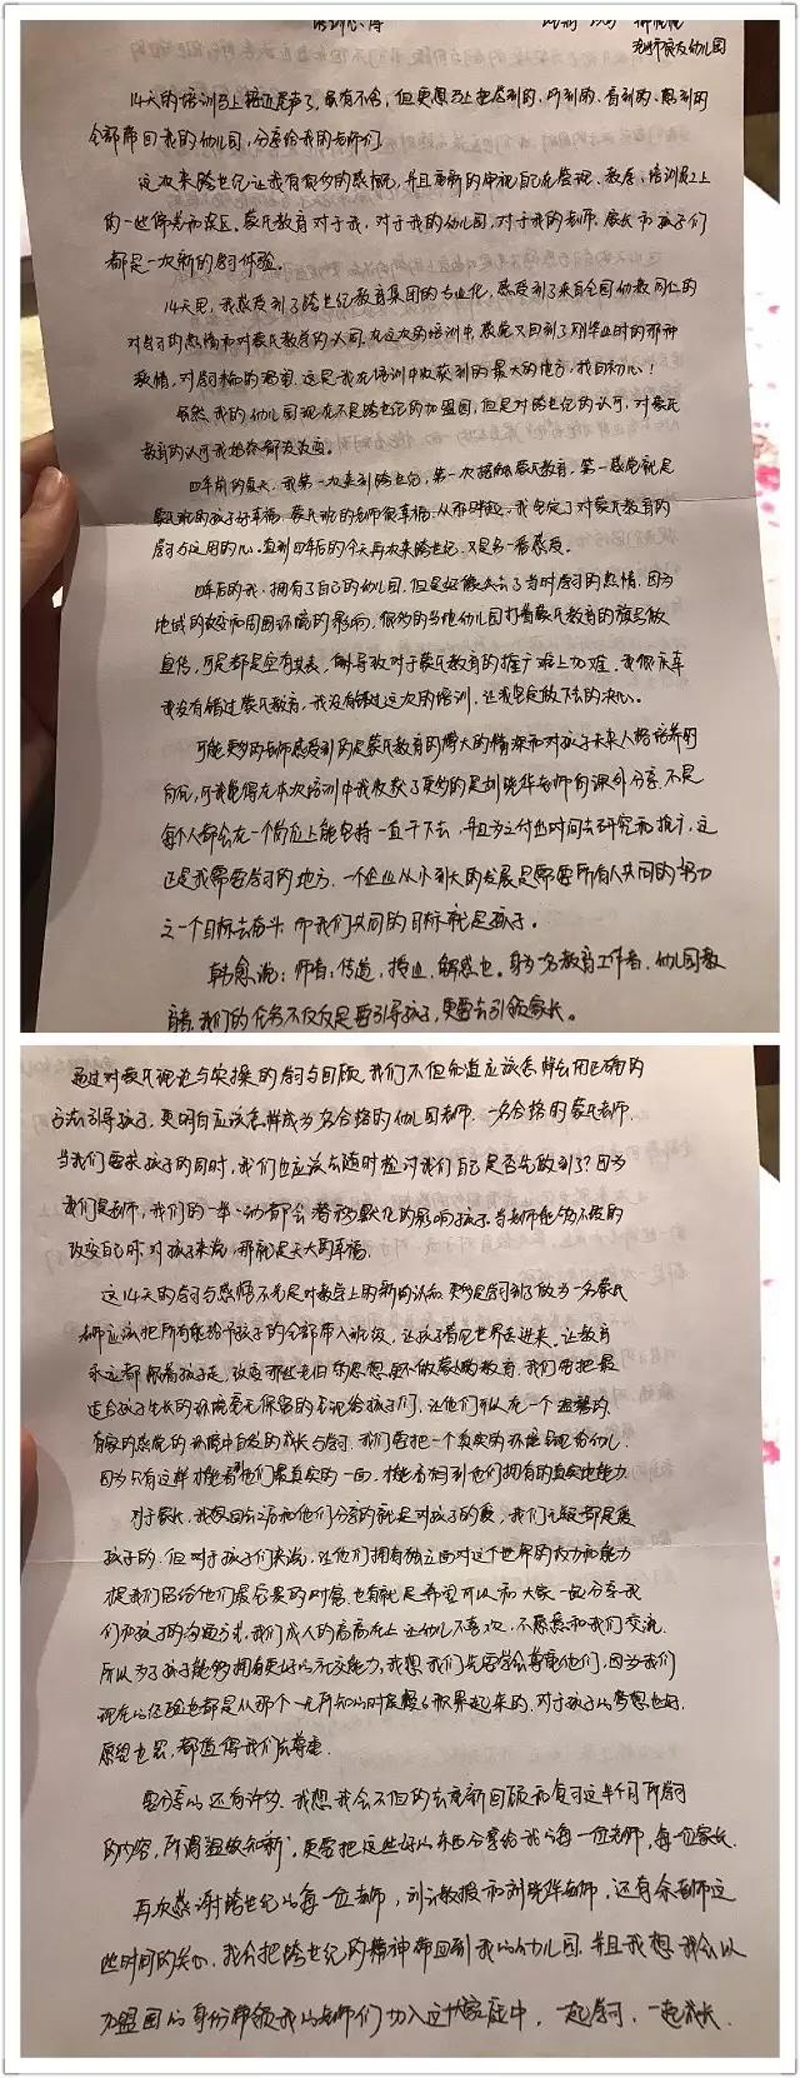 培训心得
幼儿园
14天的培训马上接近尾声了,虽有不舍,但更想马上把学到的、听到的、看到的、想到的
全部带回我的幼儿园,分享给我的老师们
这次来跨世纪让我有很多的感慨,并且重新的审视自己在管理、教学、培训员工上
的一些偏差和误区。蒙氏教育对于我,对于我的幼儿园,对于我的老师、家长和孩子们
都是一次新的学习体验。
14天里,我感受到了跨世纪教育集团的专业化,感受到了来自全国幼教同仁的
对学习的热情和对蒙氏教学的认同,在这次的培训中,感觉又回到了刚毕业时的那种
激情,对学习的渴望,这是我在培训中收获到的最大的地方,找回初心!
虽然,我的幼儿园现在不是跨世纪的加盟园,但是对跨世纪的认可,对蒙氏
教育的认可我始终都没改变。
四年前的夏天,我第一次来到跨世纪,第一次接触蒙氏教育,第一感觉就是
蒙氏班的孩子好幸福,蒙氏班的老师很幸福,从那时起,我坚定了对蒙氏教育的
学习与运用的心。直到四年后的今天再次来跨世纪,又是另一番感受。
四年后的我,拥有了自己的幼儿园,但是好像失去了当时学习的热情,因为
地域的改变和周围环境的影响,很多的当地幼儿园打着蒙氏教育的旗号做
宣传,可是都是空有其表,导致对于蒙氏教育的推广难上加难,我很庆幸
我没有错过蒙氏教育,我没有错过这次的培训,让我坚定做下去的决心。
可能更多的老师感受到的是蒙氏教育的博大的情深和对孩子未来人格培养的
方向,可我觉得在本次培训中我收获了更多的是刘晓华老师的课外分享,不是
每个人都会在一个岗位上能坚持一直干下去,并且为之付出时间去研究和推广,这
还是我需要学习的地方,一个企业从小到大的发展是需要所有人共同的努力
之一个目标去奋斗,而我们共同的目标就是孩子。
韩愈说:师者,传道,授业,解惑也。身为一名教育工作者,幼儿园教
育者,我们的任务不仅仅是要引导孩子,更要去引领家长。
通过对蒙氏理论与实操的学习与回顾,我们不但知道应该怎样去用正确的
方法引导孩子,更明白应该怎样成为一名合格的幼儿园老师,一名合格的蒙氏老师,
当我们要求孩子的同时,我们也应该去随时检讨我们自己是否先做到了?因为
我们是老师,我们的一举一动都会潜移默化的影响孩子,当老师能够不断的
改变自己时,对孩子来说,那就是天大的幸福。
这14天的学习与感悟不光是对教学上的新的认知,更多是学习到了做为一名蒙氏
老师应该把所有能给予孩子的全部带入班级,让孩子看见世界走进来,让教育
永远都跟着孩子走,改变那些老旧的思想,不做蒙娜教育,我们要把最
适合孩子生长的环境毫无保留的呈现给孩子们,让他们可以在一个温馨的,
有家的感觉的环境中自发的成长与学习,我们要把一个真实的环境呈现给幼儿,
因为只有这样才能看到他们最真实的一面,才能看到他们拥有的真实地能力
对于家长,我想回去之后和他们分享的就是对孩子的爱,我们无疑都是爱
孩子的,但对于孩子们来说,让他们拥有独立面对这个世界的权力和能力
才是我们留给他们最宝贵的财富,也有就是希望可以和大家一起分享我
们和孩子的沟通方式,我们成人的高高在上让幼儿不喜欢,不愿意和我们交流,
所以为了孩子能够拥有更好的社交能力,我想我们先要学会尊重他们,因为我们
现在的经验也都是从那个一无所知的时候慢慢积累起来的,对于孩子的梦想也好,
愿望也罢,都值得我们去尊重。
要分享的还有许多,我想我会不但的去重新回顾和复习这半个月所学习
的内容,所谓“温故知新”,更要把这些好的东西分享给我的每一位老师,每一位家长。
再次感谢跨世纪的每一位老师,刘教授和刘晓华老师,还有余老师这
些时间的关心,我会把跨世纪的精神带回到我的幼儿园,并且我想我会以
加盟园的身份带领我的老师们加入这个大家庭中,一起学习,一起成长。